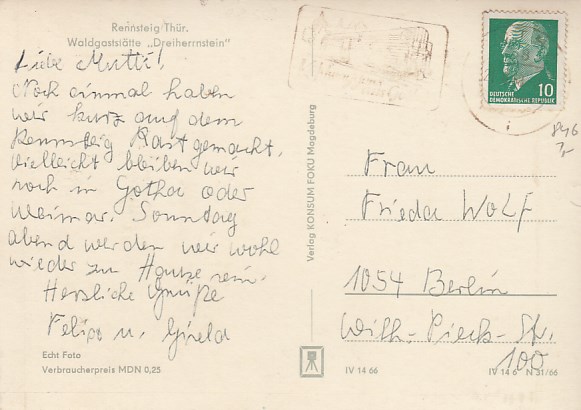 Rennsteig Thür.
Waldgaststätte „Dreiherrnstein"
Liebe Mutti!
Noch einmal haben
wir kurz auf dem
Rennsteig Rast gemacht.
Vielleicht bleiben wir
noch in Gotha oder
Weimar. Sonntag
abend werden wir wohl
wieder zu Hause sein.
Herzliche Grüße
u.
Echt Foto
Verbraucherpreis MDN 0,25
Verlag KONSUM FOKU Magdeburg
10
DEUTSCHE
DEMOKRATISCHE REPUBLIK
Frau
Frieda Wolf
1054 Berlin
Wilh.-Pieck-Str.
100
IV 14 66
IV 14 6 N 31/66